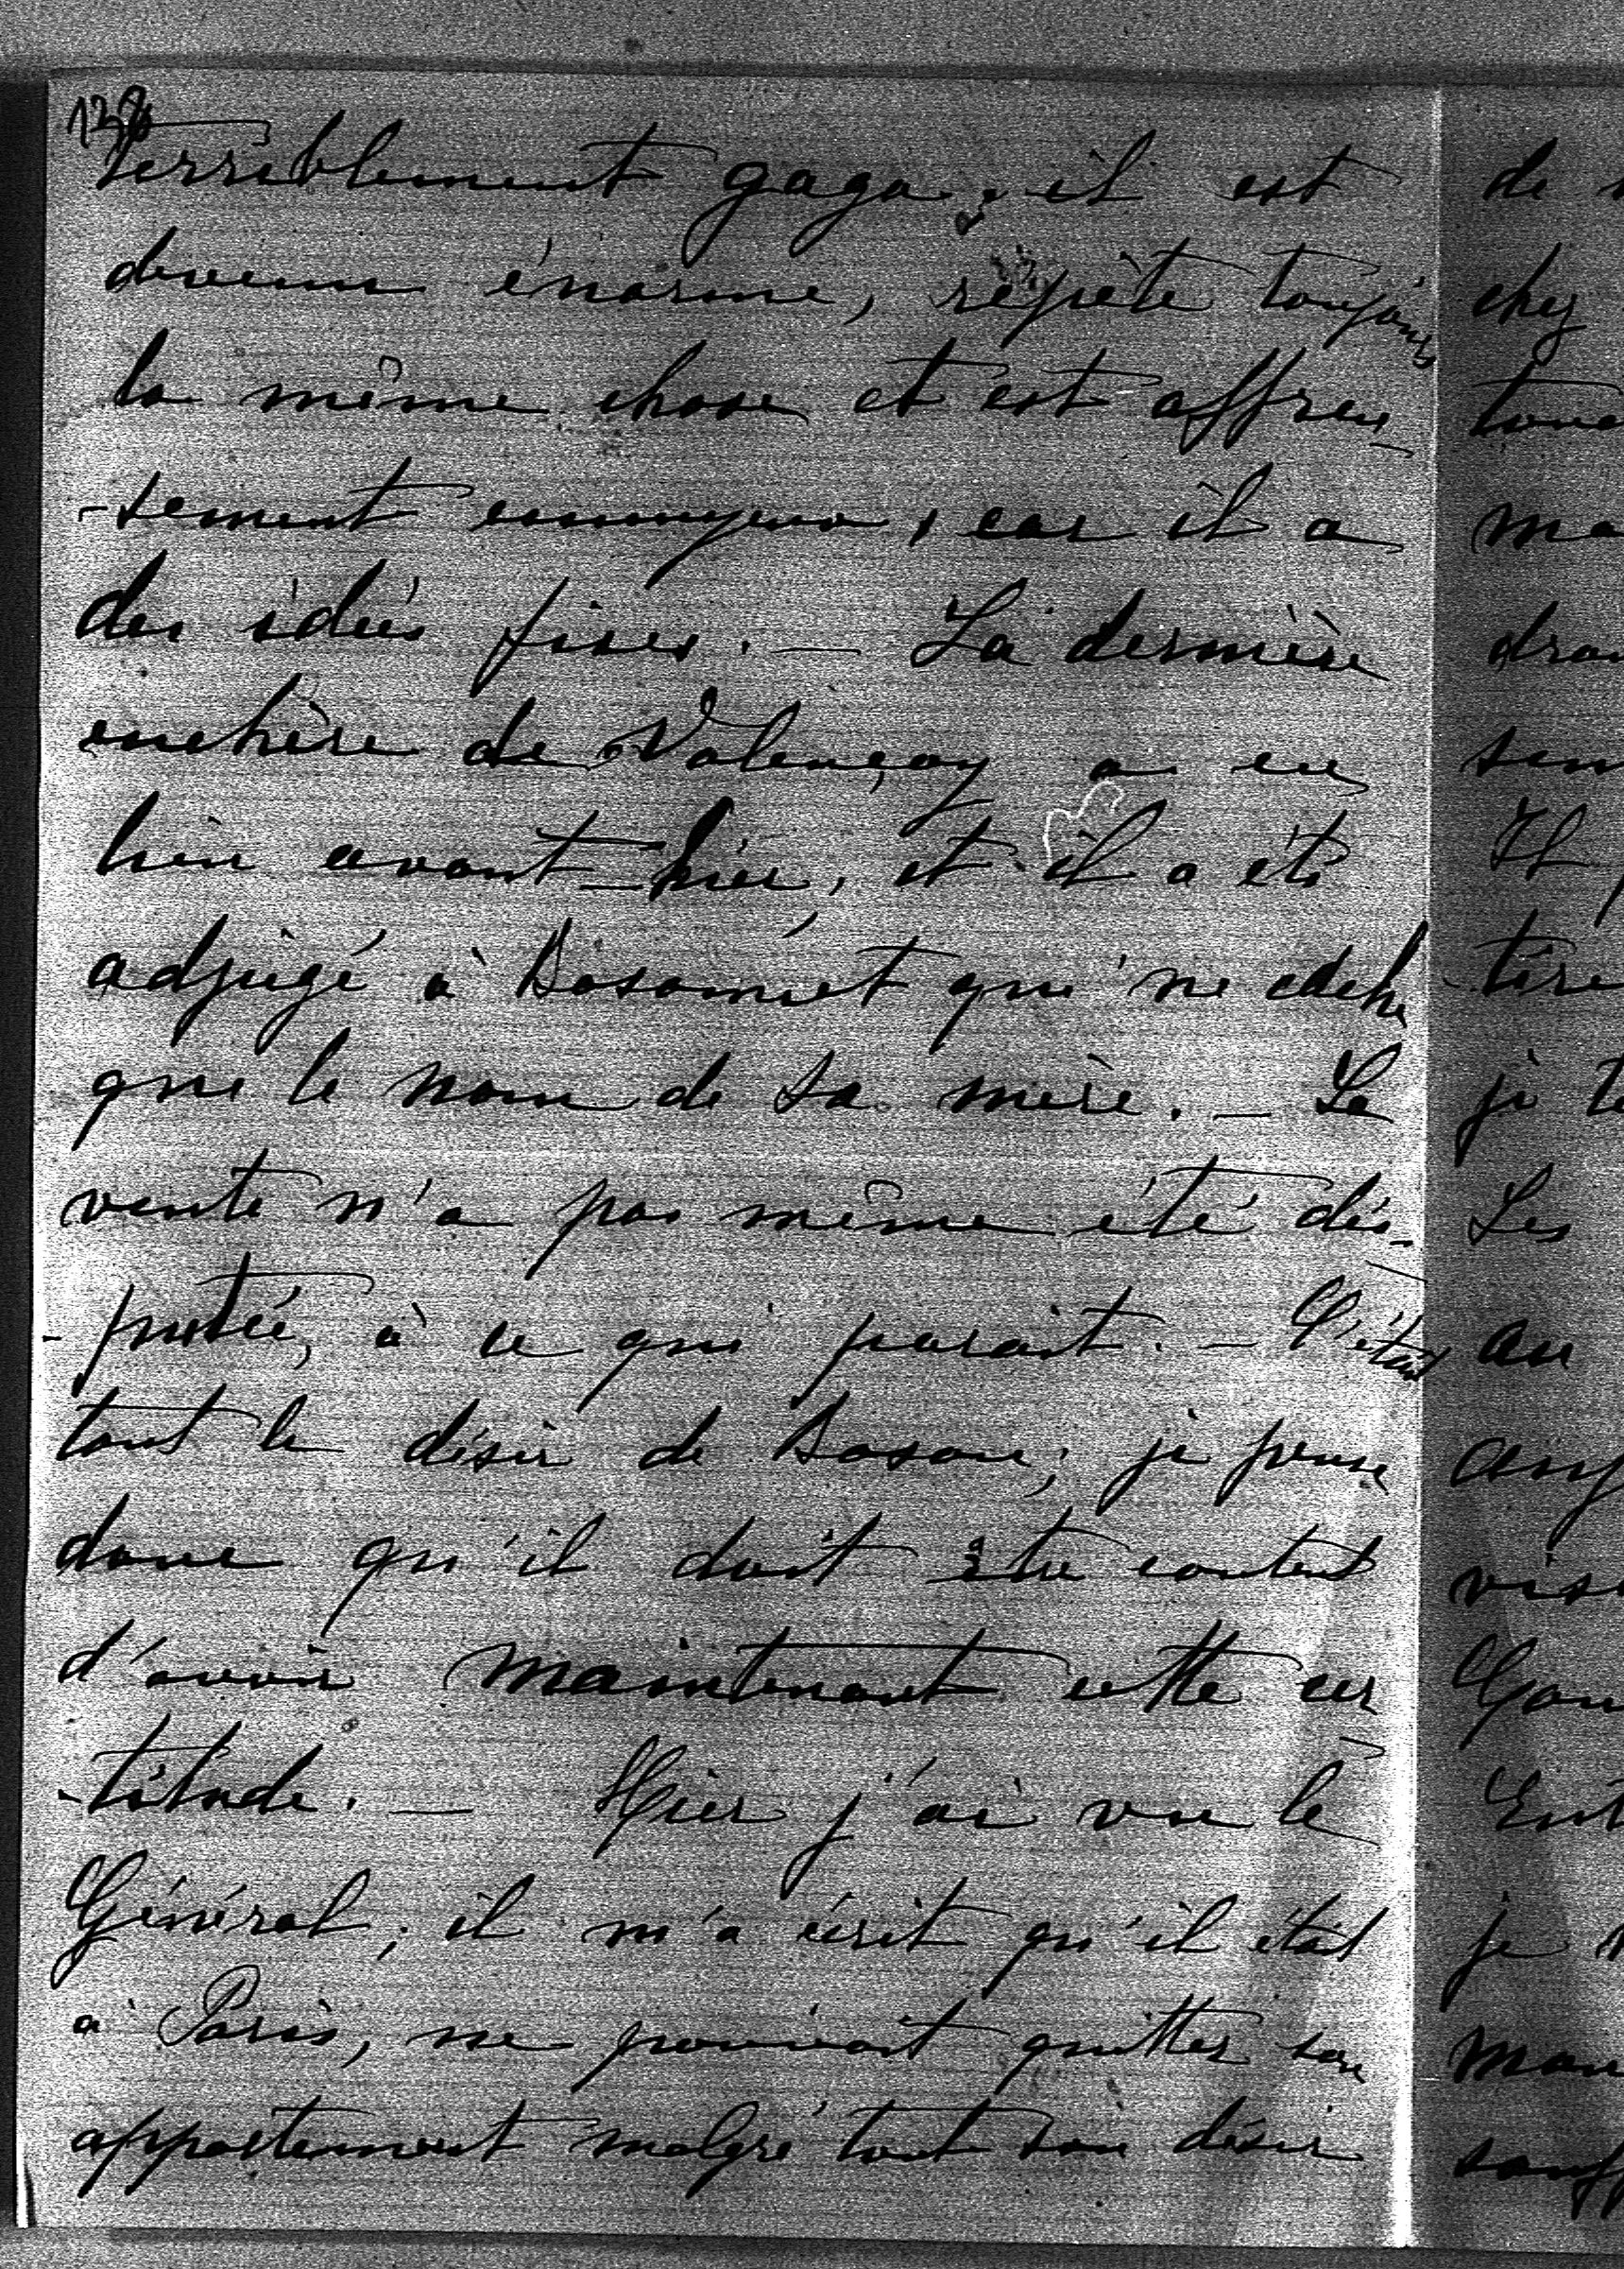 terriblement gaga, il est
devenu énorme, répète toujours
la même chose et est affreu-
-sement ennuyeux, car il a
des idées fixes. — La dernière
enchère de Valençay a eu
lieu avant-hier, et il a été
adjugé à qui ne cache
que le nom de sa mère. — La
vente n'a pas même été dis-
-putée, à ce qui parait. — C'était
tout le désir de Boson; je pense
donc qu'il doit être content
d'avoir maintenant cette cer-
-titude. — Hier j'ai vu le
Général; il m'a écrit qu'il était
à Paris, ne pouvait quitter son
appartement malgré tout son désir
de
chez
je
Les
au
Il
je